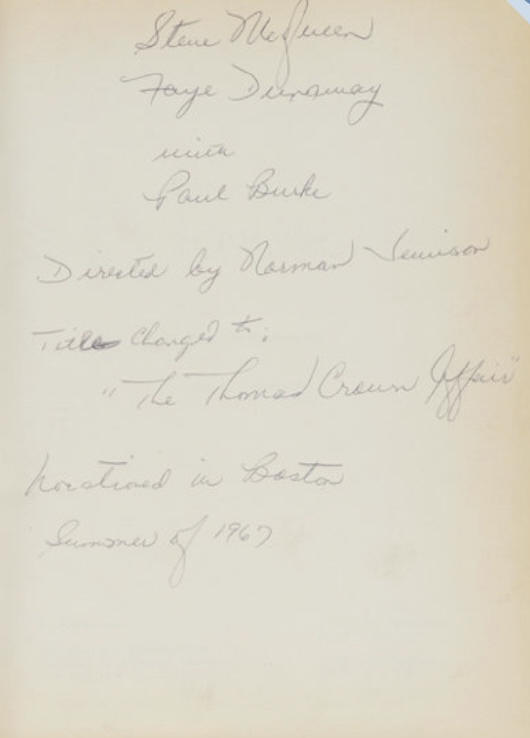 Steve McQueen
Faye Dunaway
with
Paul Burke
Directed by Norman Jewison
Title changed to:
"The Thomas Crown Affair"
Locationed in Boston
Summer of 1967